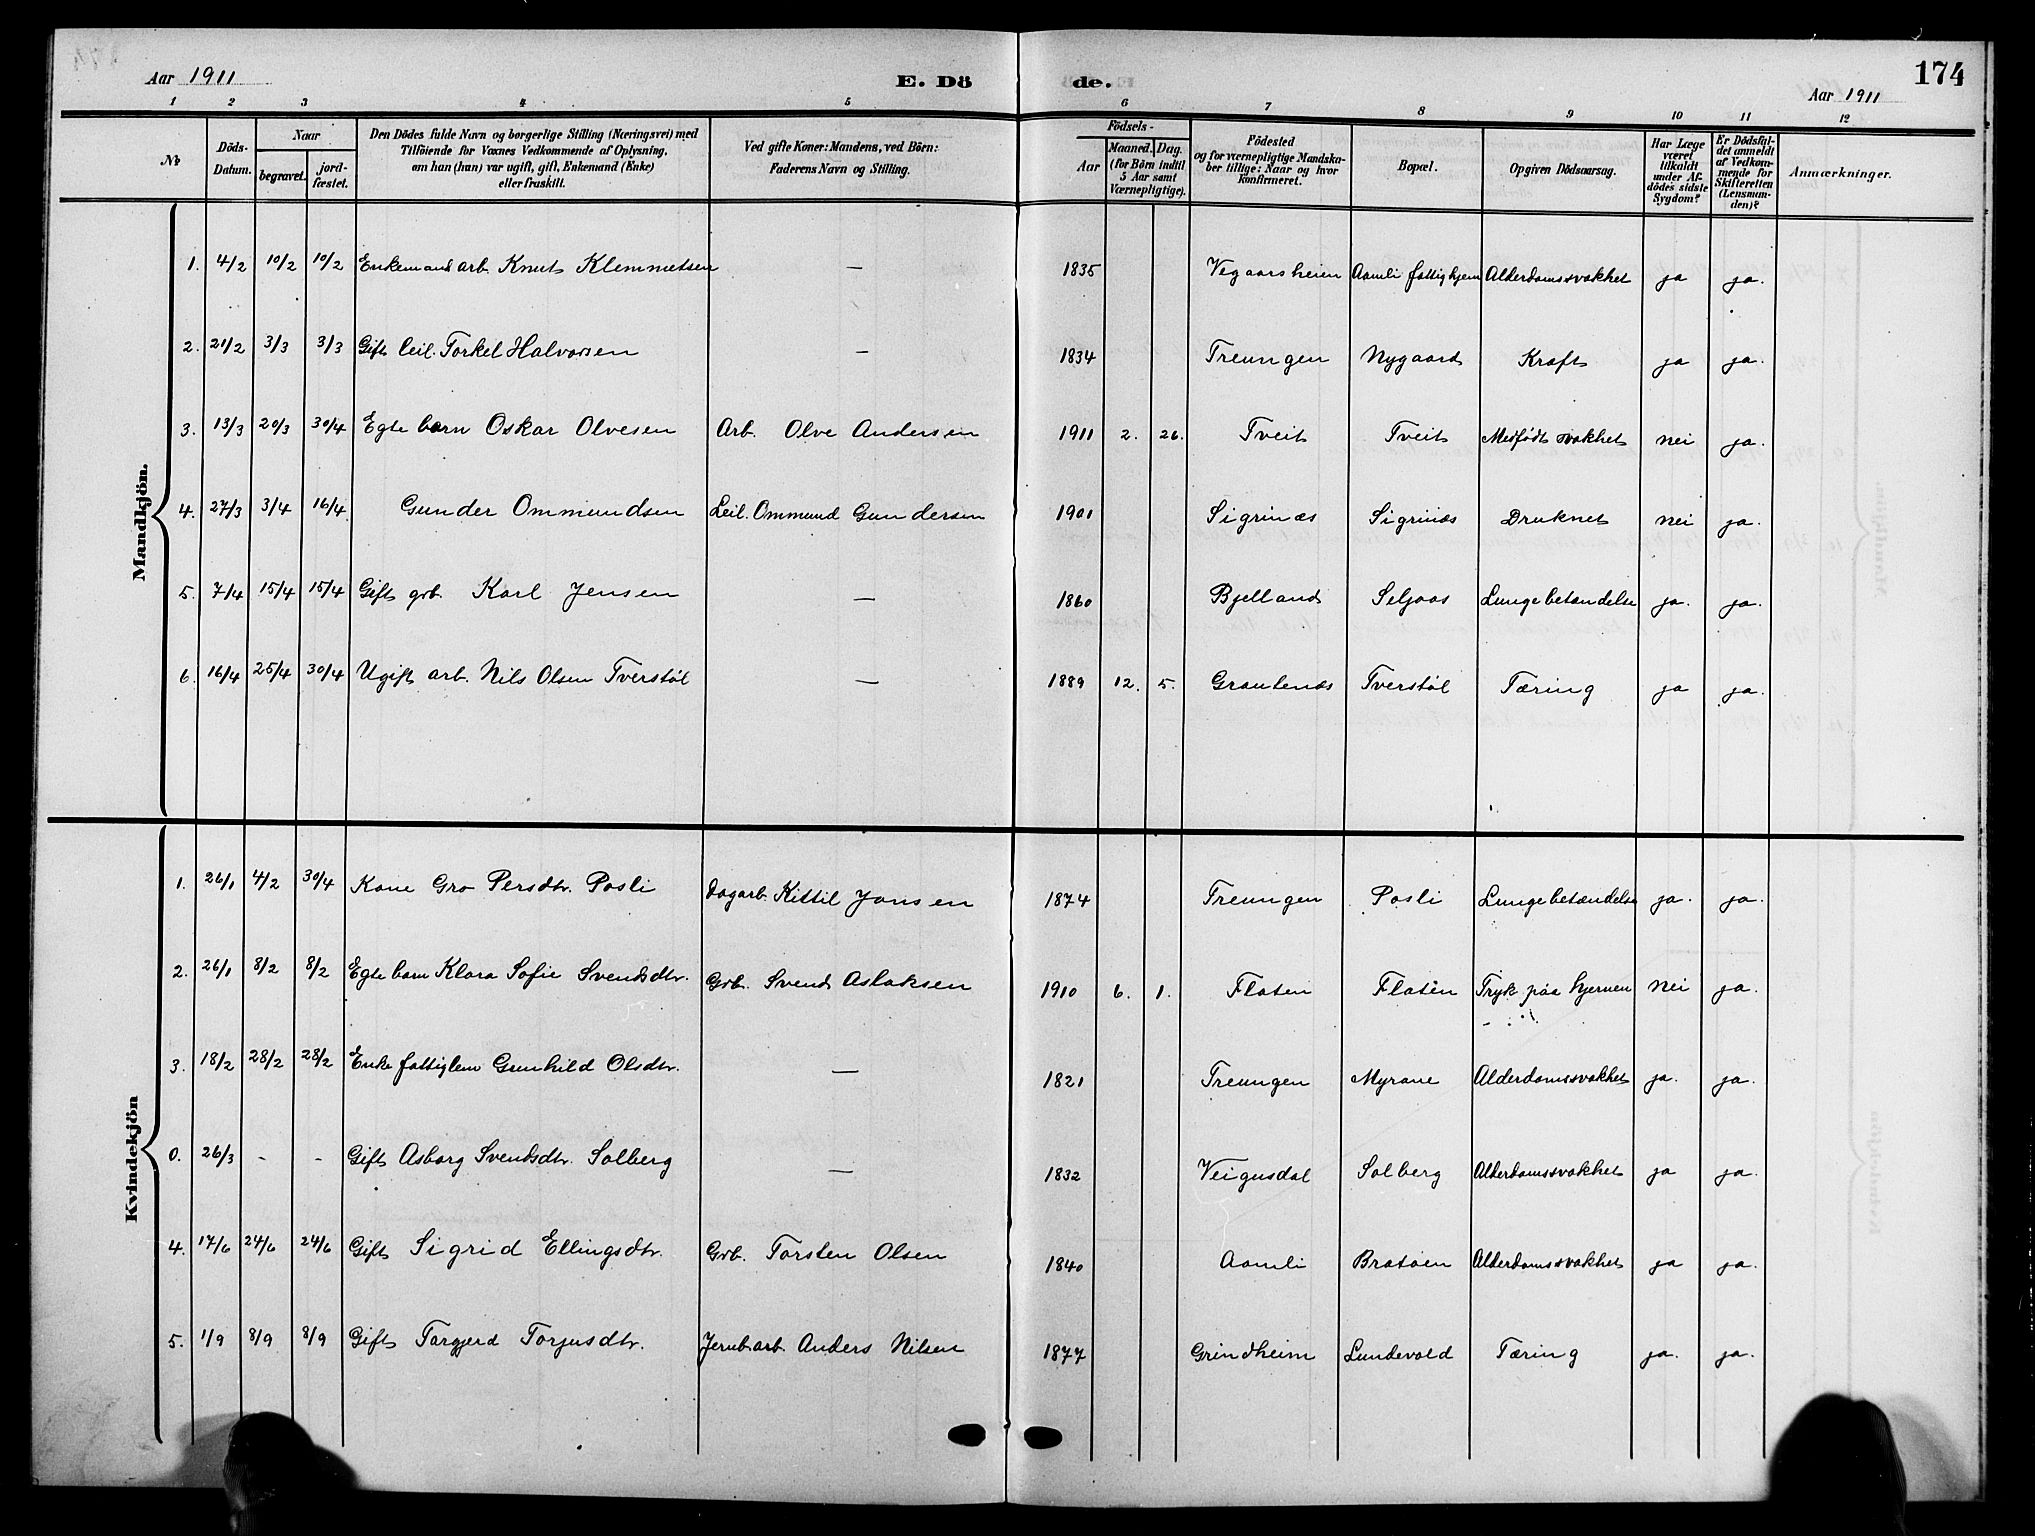 Aar 1911 E. Dö de. Aar 1911 174
1 2 3 4 5 6 7 8 9 10 11 12
No
Döds-Datum.
Naar
begravet.
jord-fæstet.
Den Dödes fulde Navn og borgerlige Stilling (Næringsvei) med
Tilföiende for Voxnes Vedkommende af Oplysning,
om han (hun) var ugift, gift, Enkemand (Enke)
eller fraskilt.
Ved gifte Koner: Mandens, ved Börn:
Faderens Navn og Stilling.
Födsels-
Aar
Maaned. Dag.
(for Börn indtil
5 Aar samt
Værnepligtige).
Födested
og for værnepligtige Mandska-
ber tillige: Naar og hvor
konfirmeret.
Bopæl.
Opgiven Dödsaarsag.
Har Læge
været
tilkaldt
under Af-
dödes sidste
Sygdom?
Er Dödsfal-
det anmeldt
af Vedkom-
mende for
Skifteretten
(Lensman-
den)?
Anmærkninger.
Mandkjön.
1. 4/2 10/2 10/2 Enkemand arb. Knut Klemmetsen — 1835 Vegaarsheien Aamli fattighjem Alderdomssvakhet ja ja.
2. 21/2 3/3 3/3 Gift leil. Torkel Halvorsen — 1834 Treungen Nygaard Kræft ja ja.
3. 13/3 20/3 30/4 Egte barn Oskar Olvesen Arb. Olve Andersen 1911 2. 26. Tveit Tveit Medfødt svakhet nei ja.
4. 27/3 3/4 16/4 Gunder Ommundsen Leil. Ommund Gundersen 1901 Sigrinæs Sigrinæs Druknet nei ja.
5. 7/4 15/4 15/4 Gift grb. Karl Jensen — 1860 Bjelland Seljaas Lungebetændelse ja. ja.
6. 16/4 25/4 30/4 Ugift arb. Nils Olsen Tverstøl — 1889 12. 5. Grautenæs Tverstøl Tæring ja ja.
Kvindekjön
1. 26/1 4/2 30/4 Kone Gro Persdtr. Posli Dagarb. Kittil Jonsen 1874 Treungen Posli Lungebetændelse ja. ja.
2. 26/1 8/2 8/2 Egte barn Klara Sofie Svendsdtr. Grb. Svend Aslaksen 1910 6. 1. Flaten Flaten Tryk paa hjernen nei ja.
3. 18/2 28/2 28/2 Enke fattiglem Gunhild Olsdtr. — 1821 Treungen Myrane Alderdomssvakhet ja. ja.
0. 26/3 - - Gift Asborg Svendsdtr. Solberg — 1832 Veigusdal Solberg Alderdomssvakhet ja ja.
4. 17/6 24/6 24/6 Gift Sigrid Ellingsdtr. Grb. Torsten Olsen 1840 Aamli Bratøen Alderdomssvakhet ja ja.
5. 1/9 8/9 8/9 Gift Torgjerd Torjusdtr. Jernb.arb. Anders Nilsen 1877 Grindheim Lundevold Tæring ja. ja.